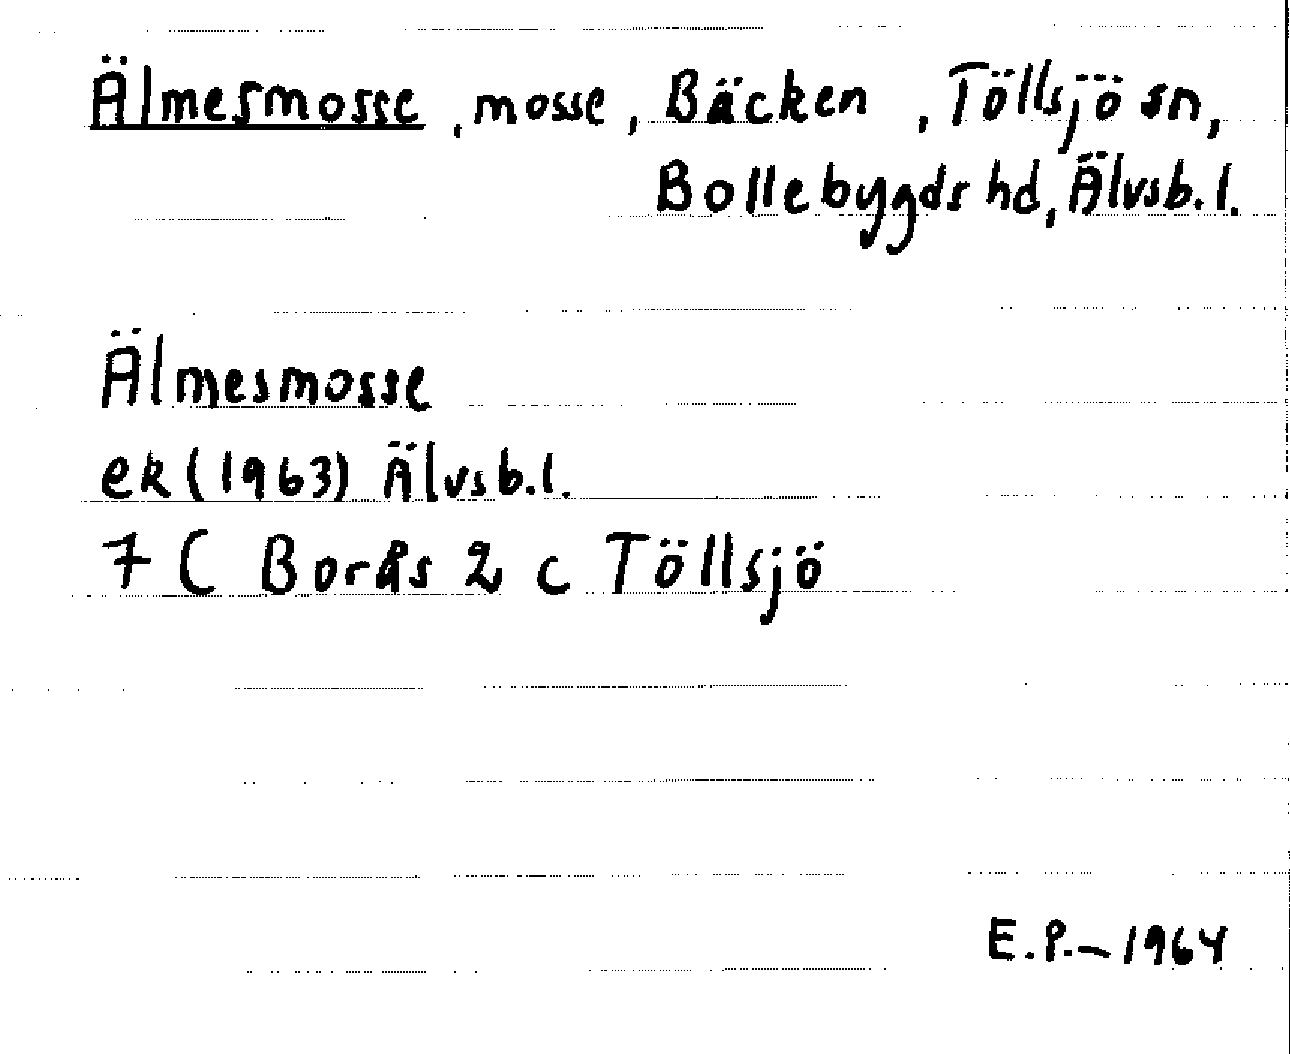 Älmesmosse, mosse, Bäcken, Töllsjö sn,
Bollebygds hd, Älvsb. l.
Älmesmosse
ek (1963) Älvsb. l.
7 C Borås 2 c Töllsjö
E. P. – 1964